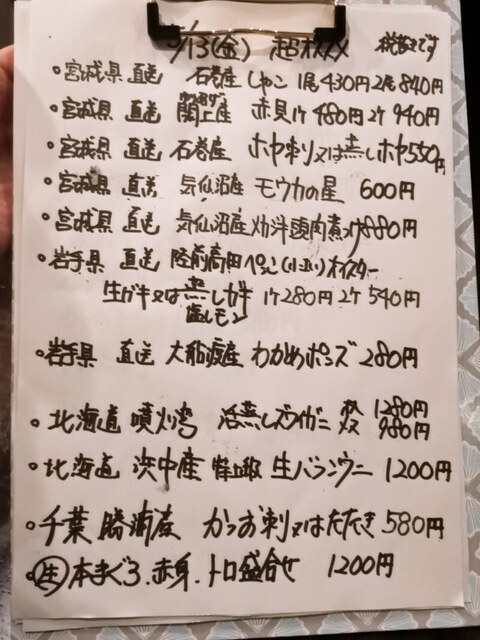 /13(金) 超オススメ 税抜きです
・宮城県 直送 石巻産 しゃこ 1尾430円 2尾840円
・宮城県 直送 閖上産 赤貝 1ケ480円 2ケ940円
・宮城県 直送 石巻産 ホヤ刺又は蒸しホヤ550円
・宮城県 直送 気仙沼産 モウカの星 600円
・宮城県 直送 気仙沼産 頭肉煮 880円
・岩手県 直送 陸前高田 オイスター
生ガキ又は蒸しガキ 1ケ280円 2ケ540円
塩レモン
・岩手県 直送 大船渡産 わかめポンズ 280円
・北海道 噴火湾 活蒸しズワイガニ 1280円
980円
・北海道 浜中産 特上級 生バフンウニ 1200円
・千葉 勝浦産 かつお刺又はたたき 580円
・生 本まぐろ、赤身、トロ盛合せ 1200円